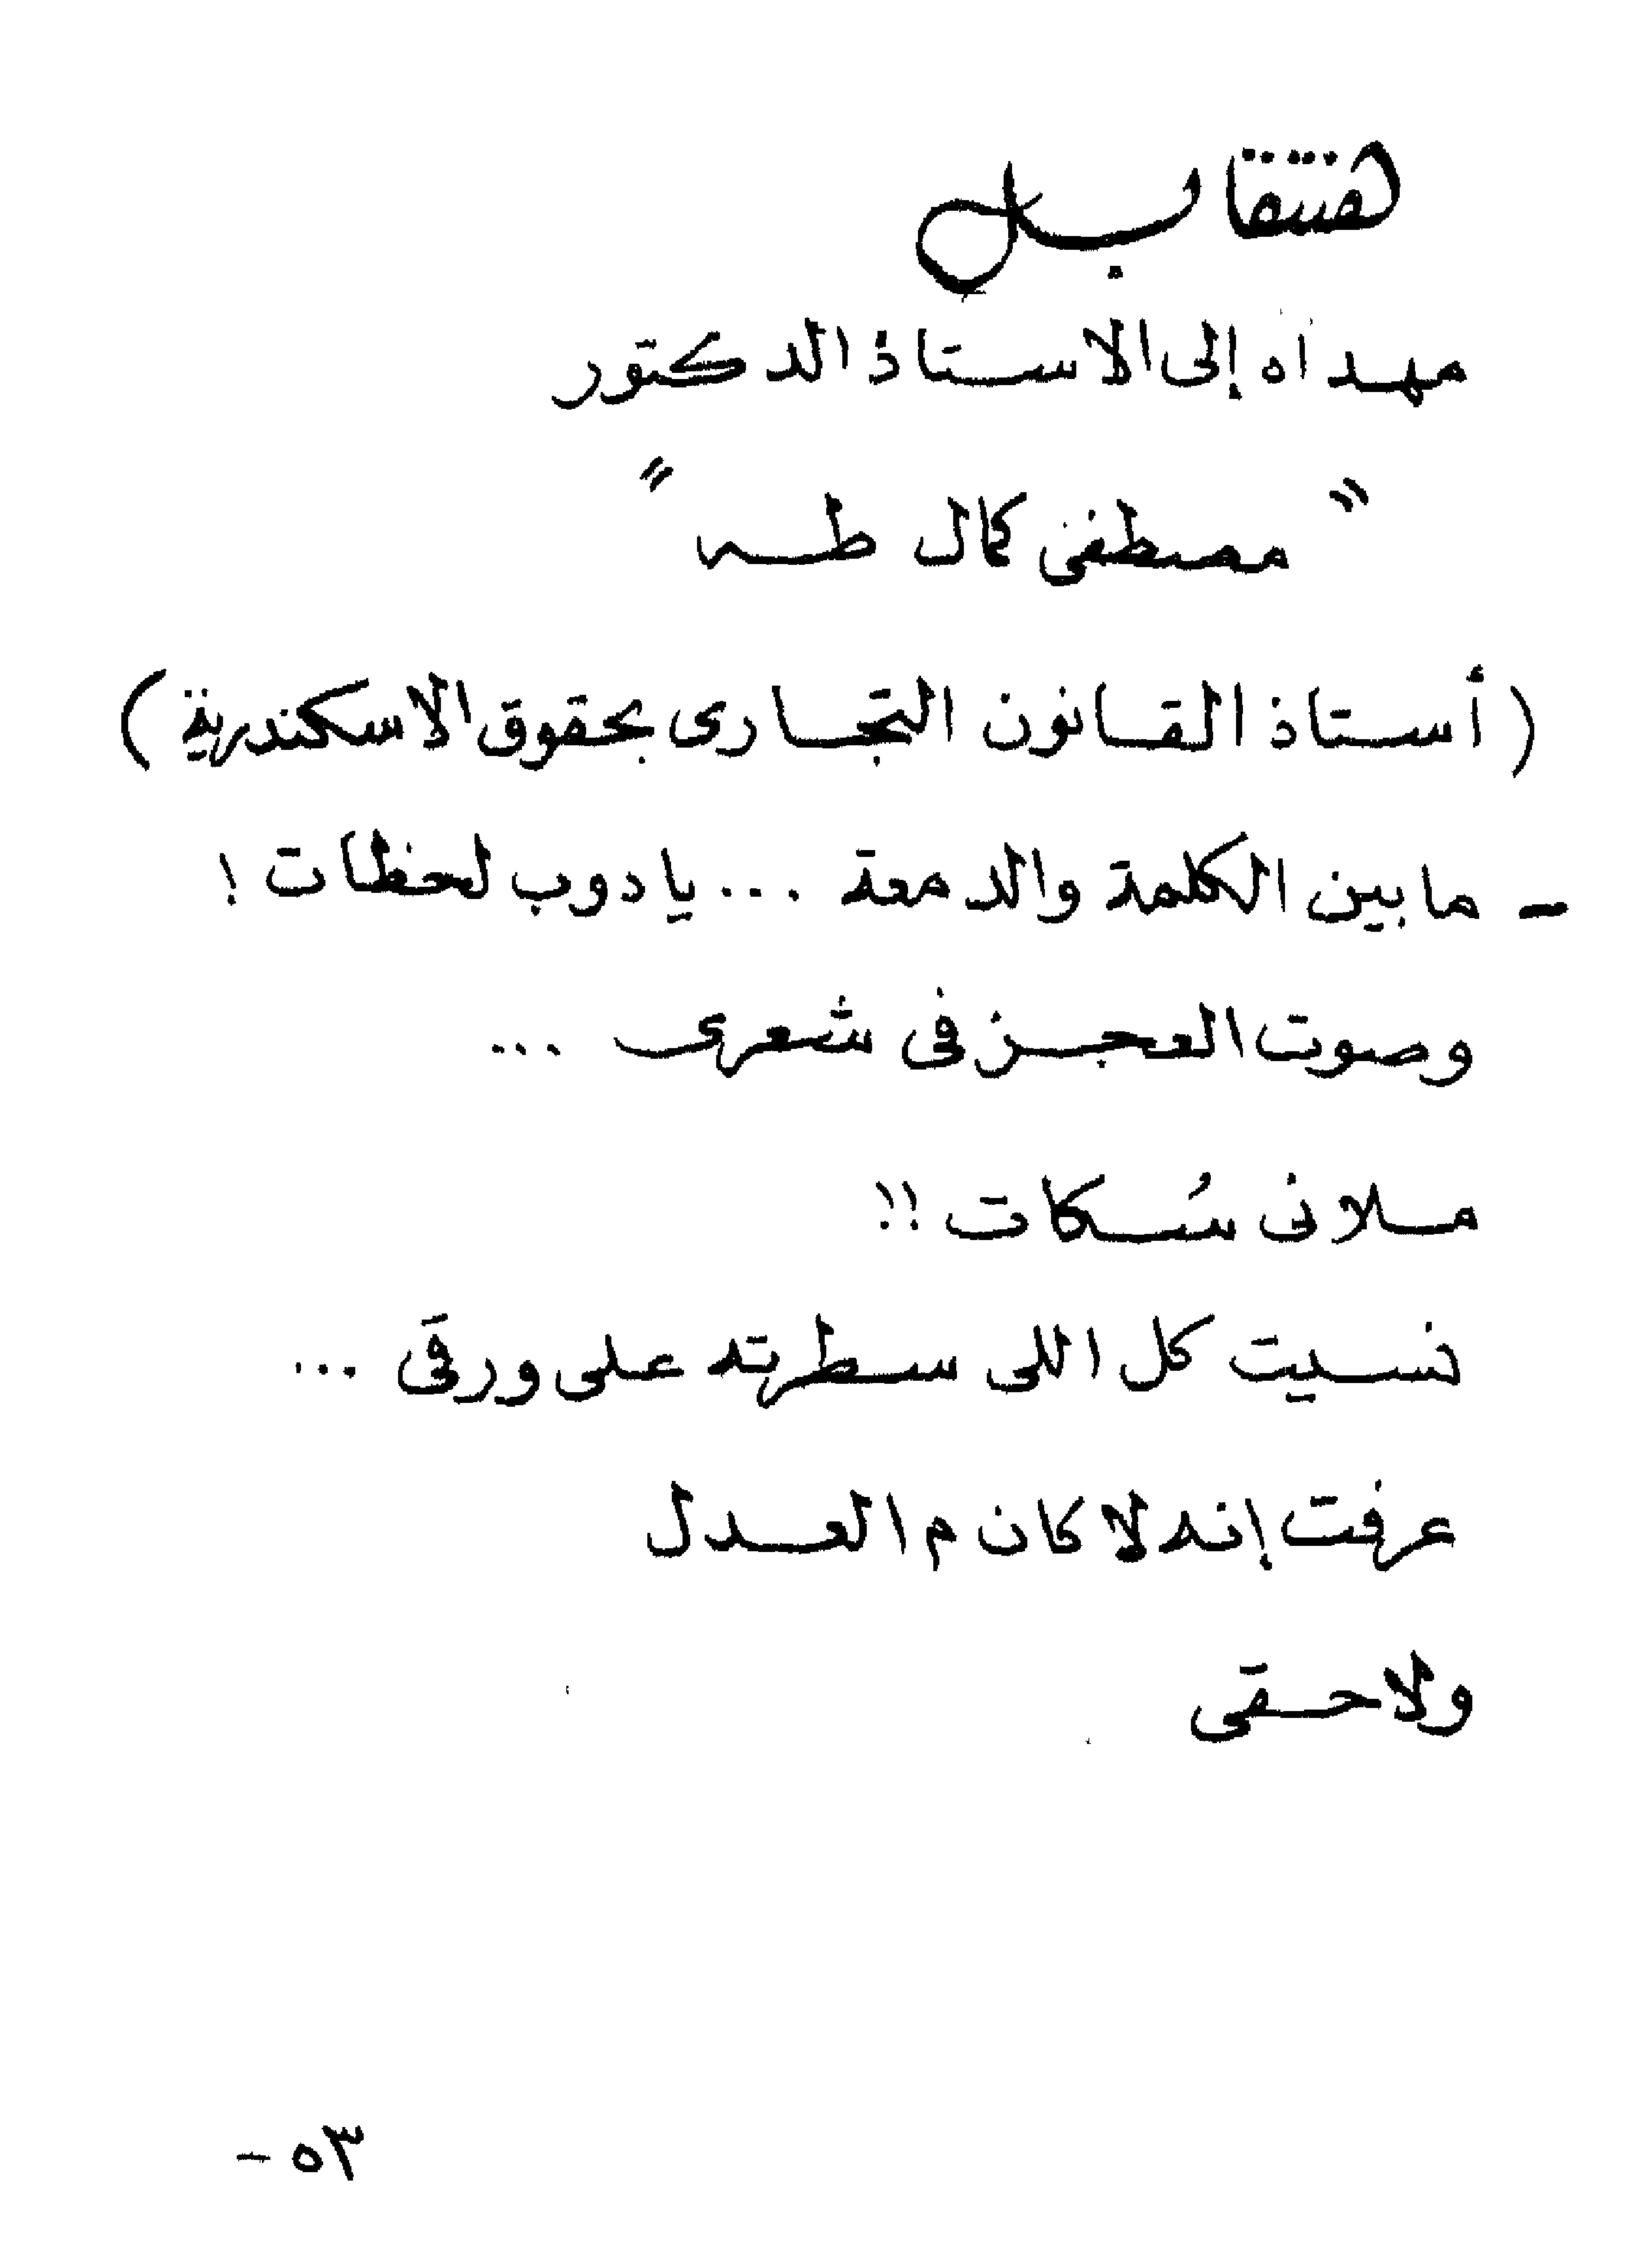 هنتقابل
مهداه إلى الاستاذ الدكتور
" مصطفى كمال طه "
( أستاذ القانون التجارى بحقوق الاسكندرية )
- ما بين الكلمة والدمعة ... يادوب لحظات !
وصوت العجز فى شعرى ...
ملانى سُكات !!
نسيت كل اللى سطرته على ورقى ...
عرفت إنه لا كان م العدل
ولا حقى
٥٣ -